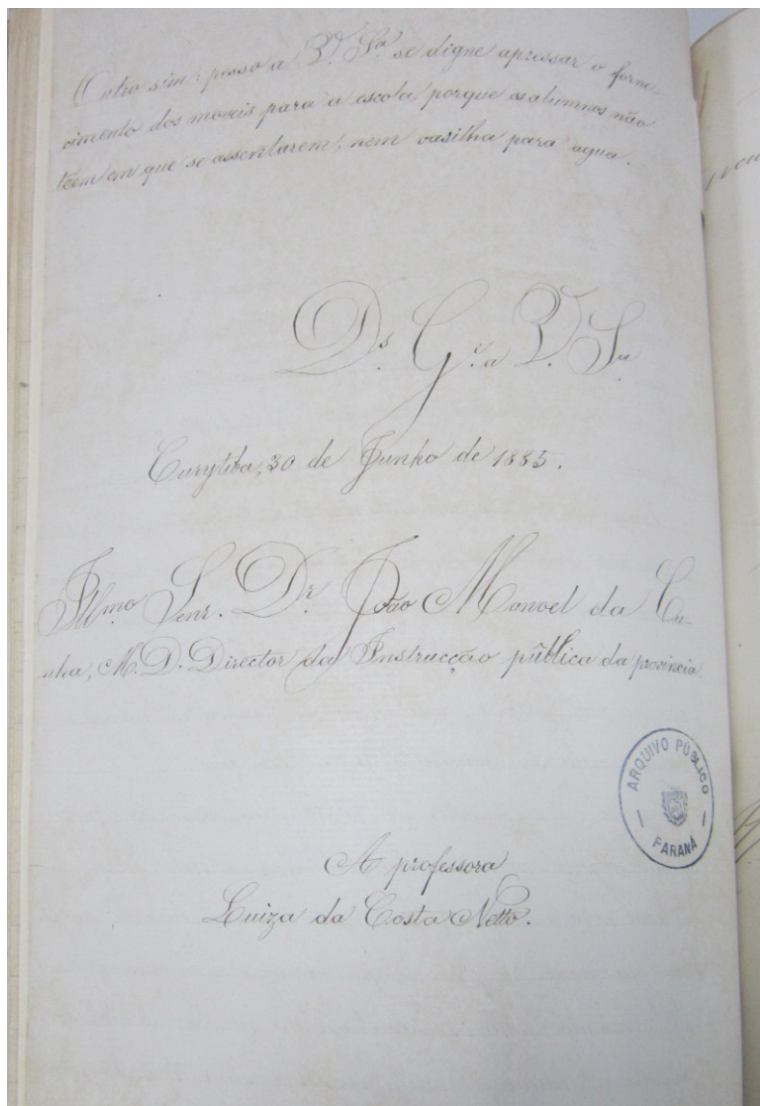 Outro sim: peço a V. Sa. se digne apressar o forne-
cimento dos moveis para a escola porque os alumnos não
têem em que se assentarem, nem vasilha para agua.
Ds. Ge. a V. Sa.
Curytiba, 30 de Junho de 1885.
Illmo Senr. Dr. João Manoel da Cu-
nha, M. D. Director da Instrucção pública da provincia.
ARQUIVO PÚBLICO
PARANÁ
A professora
Luiza da Costa Netto.